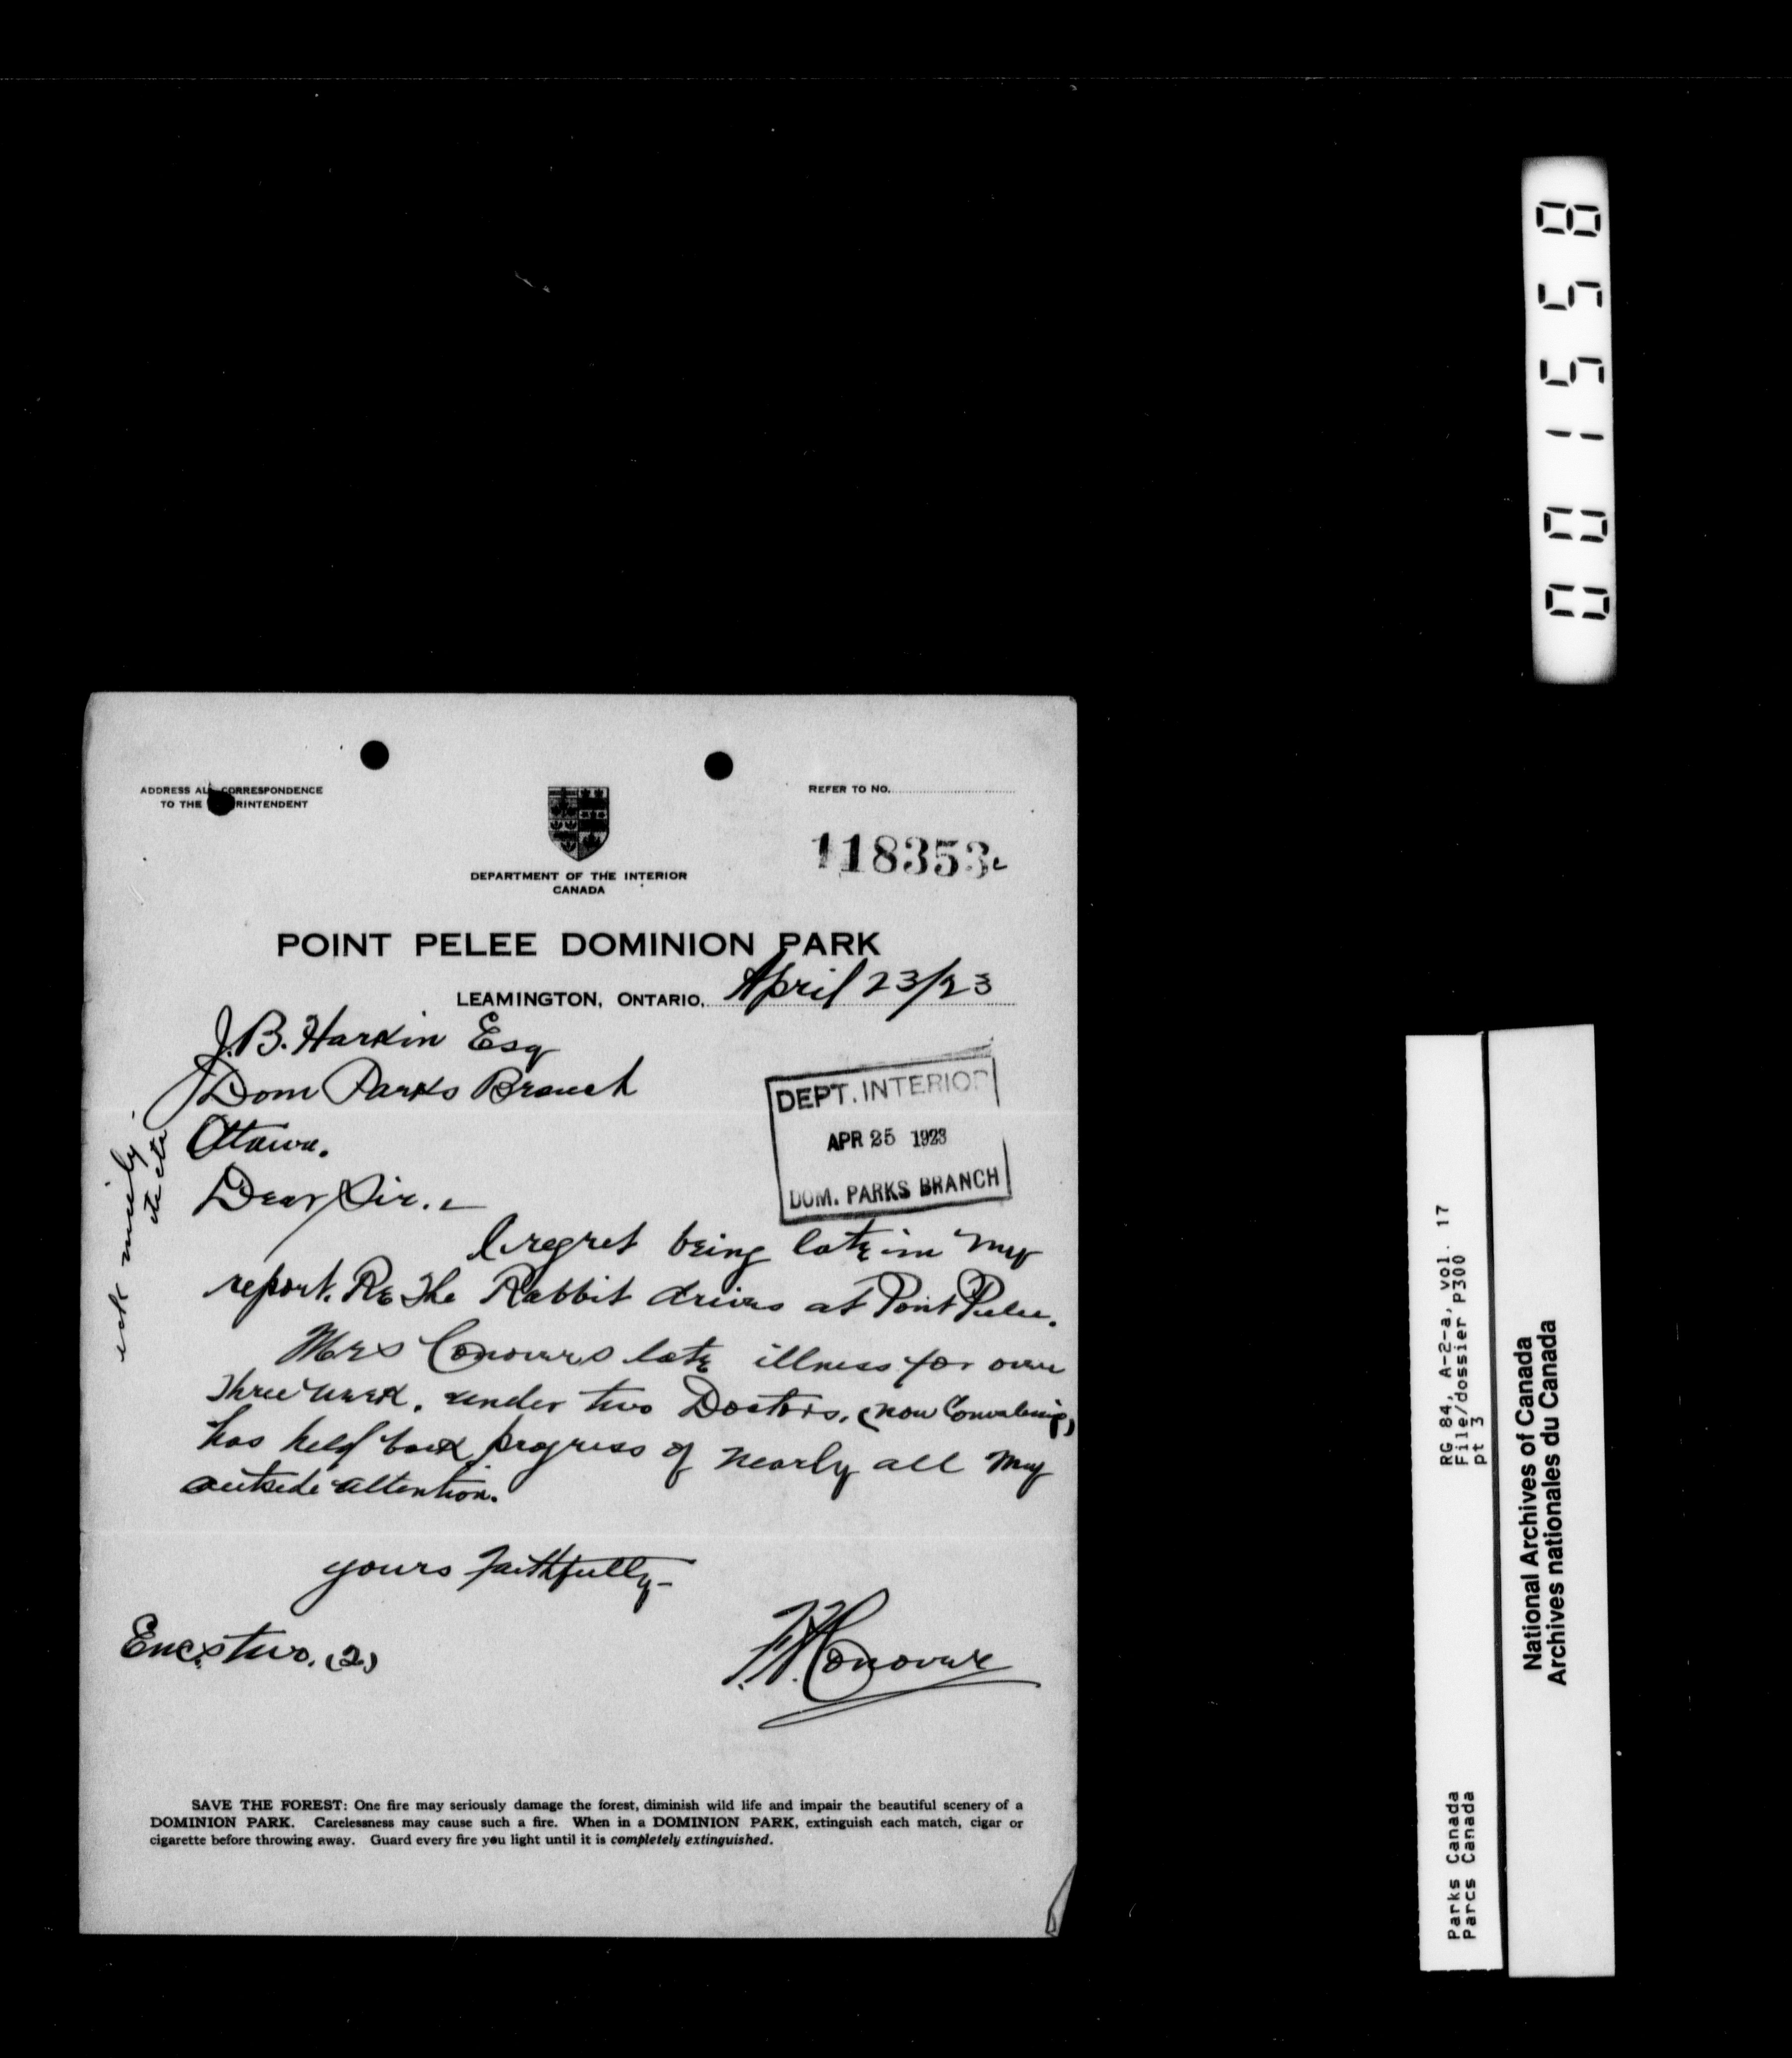 ADDRESS ALL CORRESPONDENCE
TO THE RINTENDENT
REFER TO NO.
118353
DEPARTMENT OF THE INTERIOR
CANADA
POINT PELEE DOMINION PARK
LEAMINGTON, ONTARIO, April 23/23
J.B. Harkin Esq
Dom Parks Branch
Ottawa.
Dear Sir. –
DEPT. INTERIOR
APR 25 1923
DOM. PARKS BRANCH
I regret being late in my
report. Re The Rabbit drives at Point Pelee.
Mrs Conovers late illness for over
three week. under two Doctors. (now
has held back progress of nearly all my
outside attention.
yours faithfully–
Encs two. (2)
F.H. Conover
SAVE THE FOREST: One fire may seriously damage the forest, diminish wild life and impair the beautiful scenery of a
DOMINION PARK. Carelessness may cause such a fire. When in a DOMINION PARK, extinguish each match, cigar or
cigarette before throwing away. Guard every fire you light until it is completely extinguished.
001558
RG 84, A-2-a, vol. 17
File/dossier P300
pt 3
Parks Canada
Parcs Canada
National Archives of Canada
Archives nationales du Canada